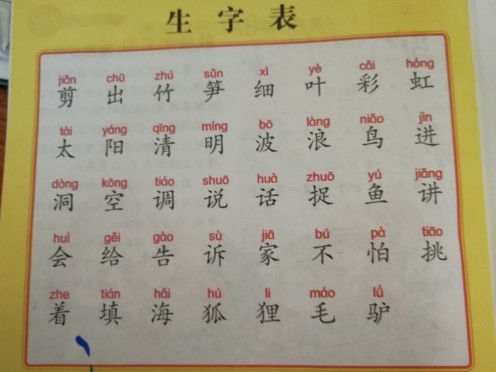 生字表
jiǎn chū zhú sǔn xì yè cǎi hóng
剪 出 竹 笋 细 叶 彩 虹
tài yáng qīng míng bō làng niǎo jìn
太 阳 清 明 波 浪 鸟 进
dòng kōng tiáo shuō huà zhuō yú jiǎng
洞 空 调 说 话 捉 鱼 讲
huì gěi gào sù jiā bú pà tiāo
会 给 告 诉 家 不 怕 挑
zhe tián hǎi hú li máo lǘ
着 填 海 狐 狸 毛 驴